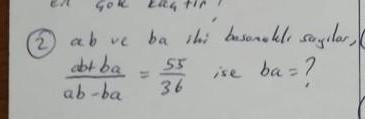 en çok kaçtır?
② ab ve ba iki basamaklı sayılar,
ab+ba / ab-ba = 55/36 ise ba=?